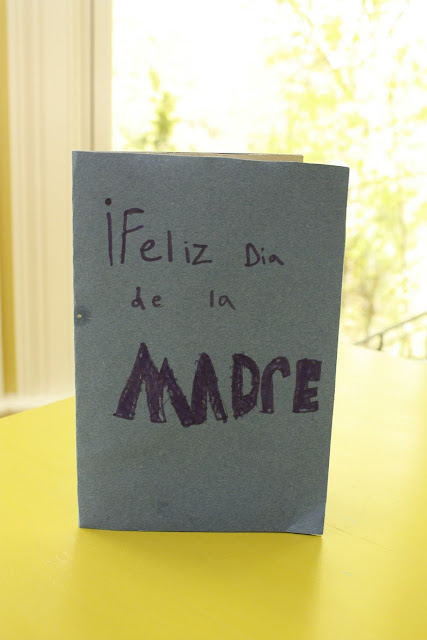 ¡Feliz Dia
de la
MADRE